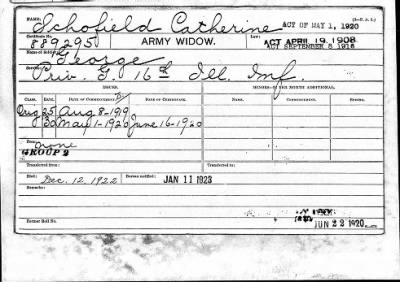 NAME: Schofield Catherine ACT OF MAY 1, 1920
Certificate No. 889295 ARMY WIDOW. Law: ACT APRIL 19, 1908
ACT SEPTEMBER 8 1916
Name of Soldier: George
Service: Priv. G. 16th Ill. Inf.
ISSUES. MINOR—$2 PER MONTH ADDITIONAL.
CLASS. RATE. DATE OF COMMENCEMENT. DATE OF CERTIFICATE. NAME. COMMENCEMENT.
Orig 25 Aug 8-1919
30 May 1-1920 June 16-1920
none
GROUP 2
Transferred from: Transferred to:
Died: Dec. 12, 1922 Bureau notified: JAN 11 1923
Remarks:
Former Roll No. JUN 22 1920